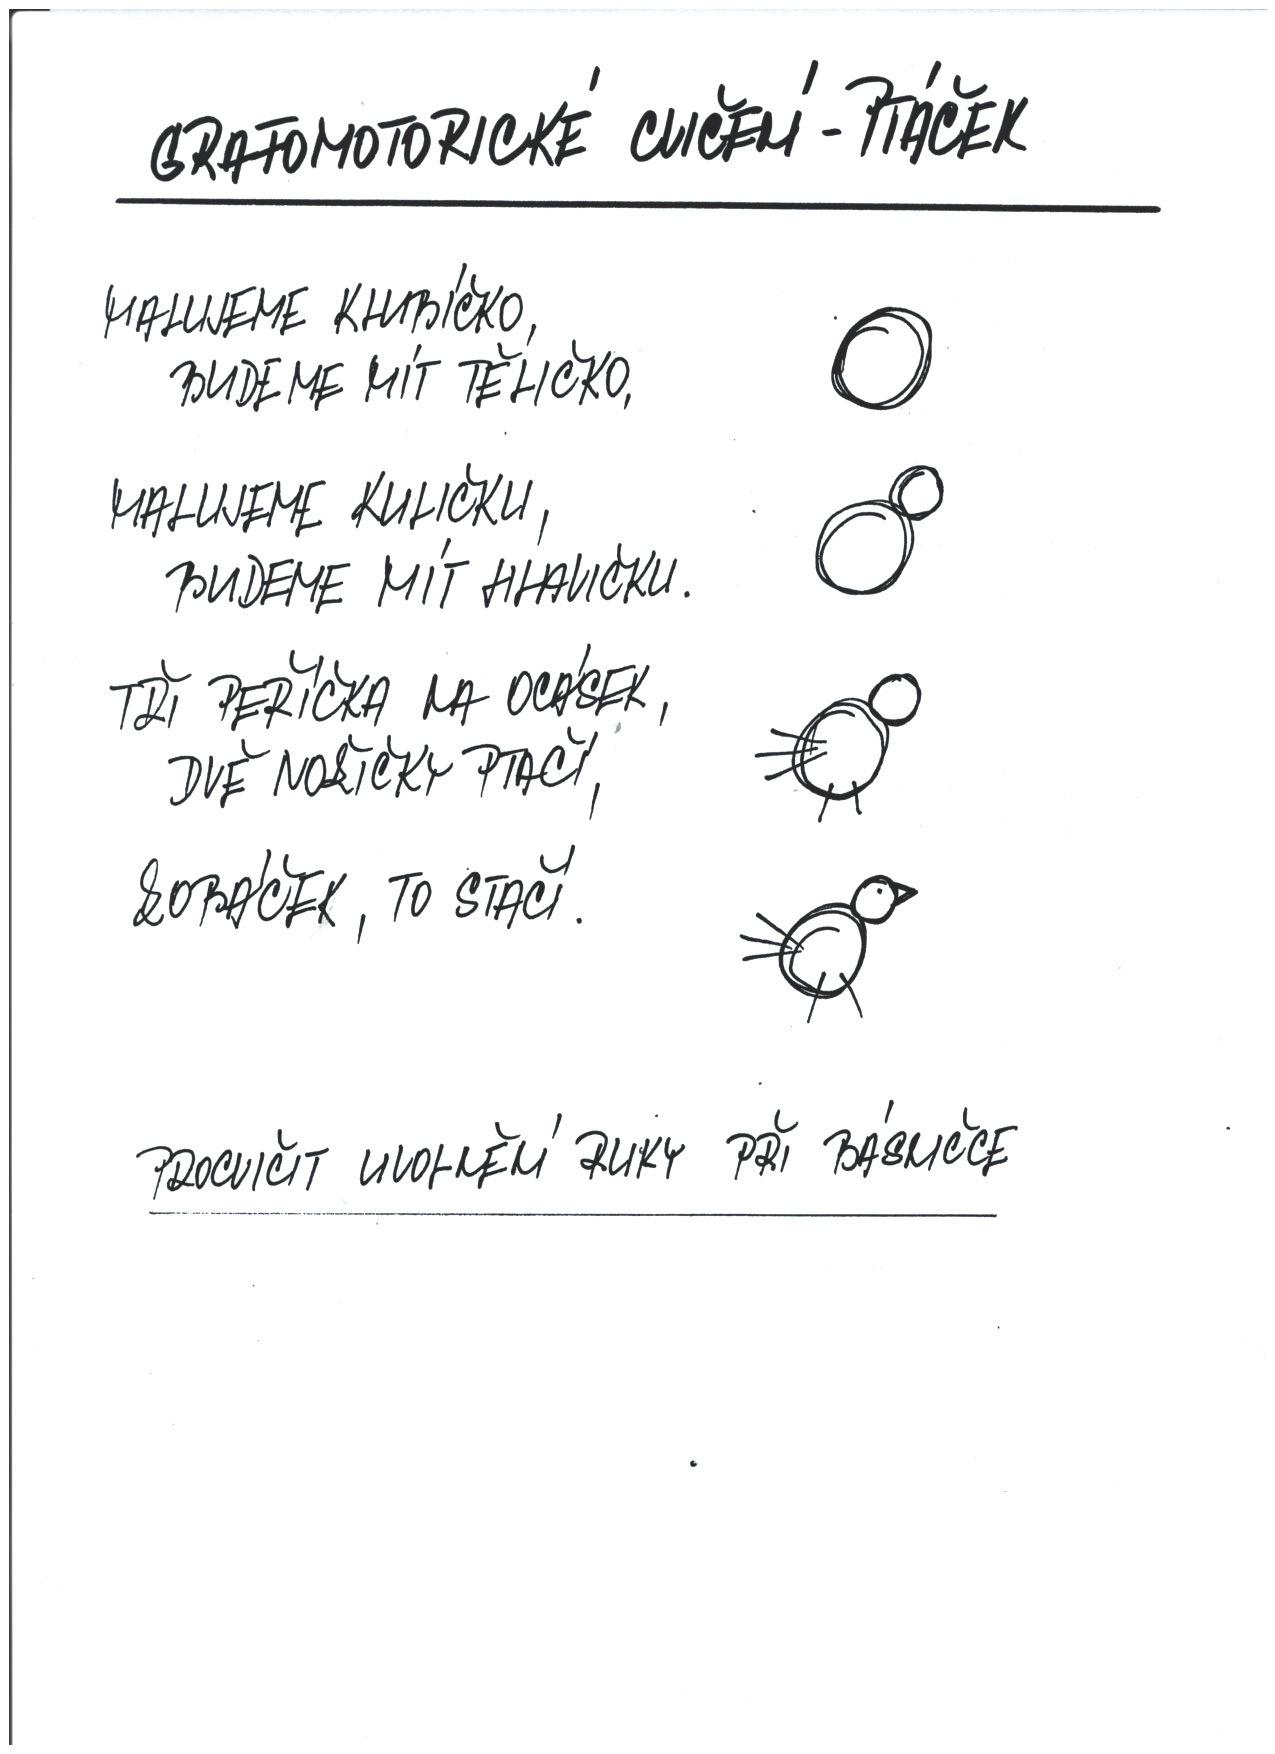 GRAFOMOTORICKÉ CVIČENÍ - PTÁČEK
MALUJEME KLUBÍČKO,
BUDEME MÍT TĚLÍČKO,
MALUJEME KULIČKU,
BUDEME MÍT HLAVIČKU.
TŘI PEŘÍČKA NA OCÁSEK,
DVĚ NOŽIČKY PTAČÍ,
ZOBÁČEK, TO STAČÍ.
PROCVIČIT UVOLNĚNÍ RUKY PŘI BÁSNIČCE